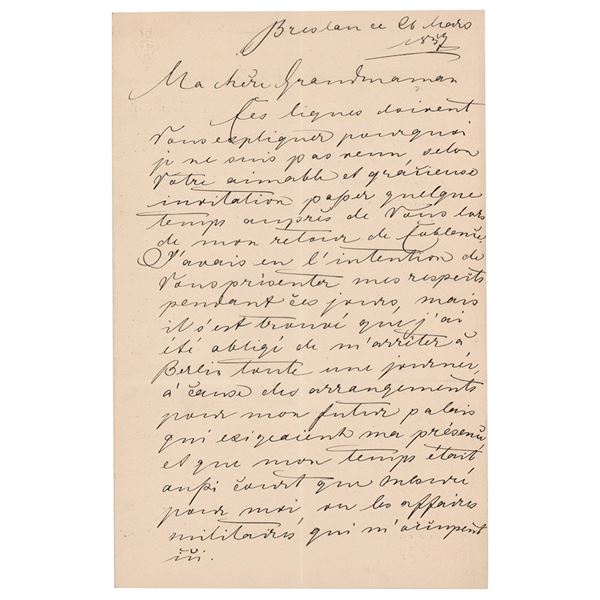 Breslau ce 26 Mars
1857
Ma chère Grandmaman
Ces lignes doivent
Vous expliquer pourquoi
je ne suis pas venu, selon
Votre aimable et gražieuse
invitation passer quelque
temps auprès de Vous lors
de mon retour de Coblence.
J'avais eu l'intention de
Vous présenter mes respects
pendant ces jours, mais
il s'est trouvé que j'ai
été obligé de m'arrêter à
Berlin toute une journée,
à cause des arrangements
pour mon futur palais
qui exigeaient ma présence
et que mon temps était
aussi court que mesuré
pour moi vu les affaires
militaires qui m'occupent
ici.